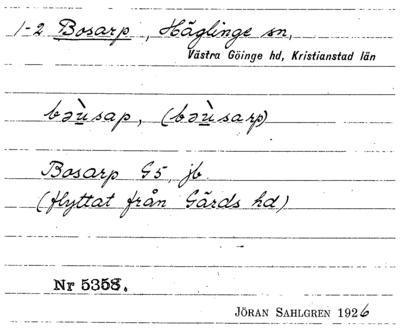 1-2 Bosarp, Häglinge sn,
Västra Göinge hd, Kristianstad län
bəùsap, (bəùsarp)
Bosarp G5, jb.
(flyttat från Gärds hd)
Nr 5358.
JÖRAN SAHLGREN 1926